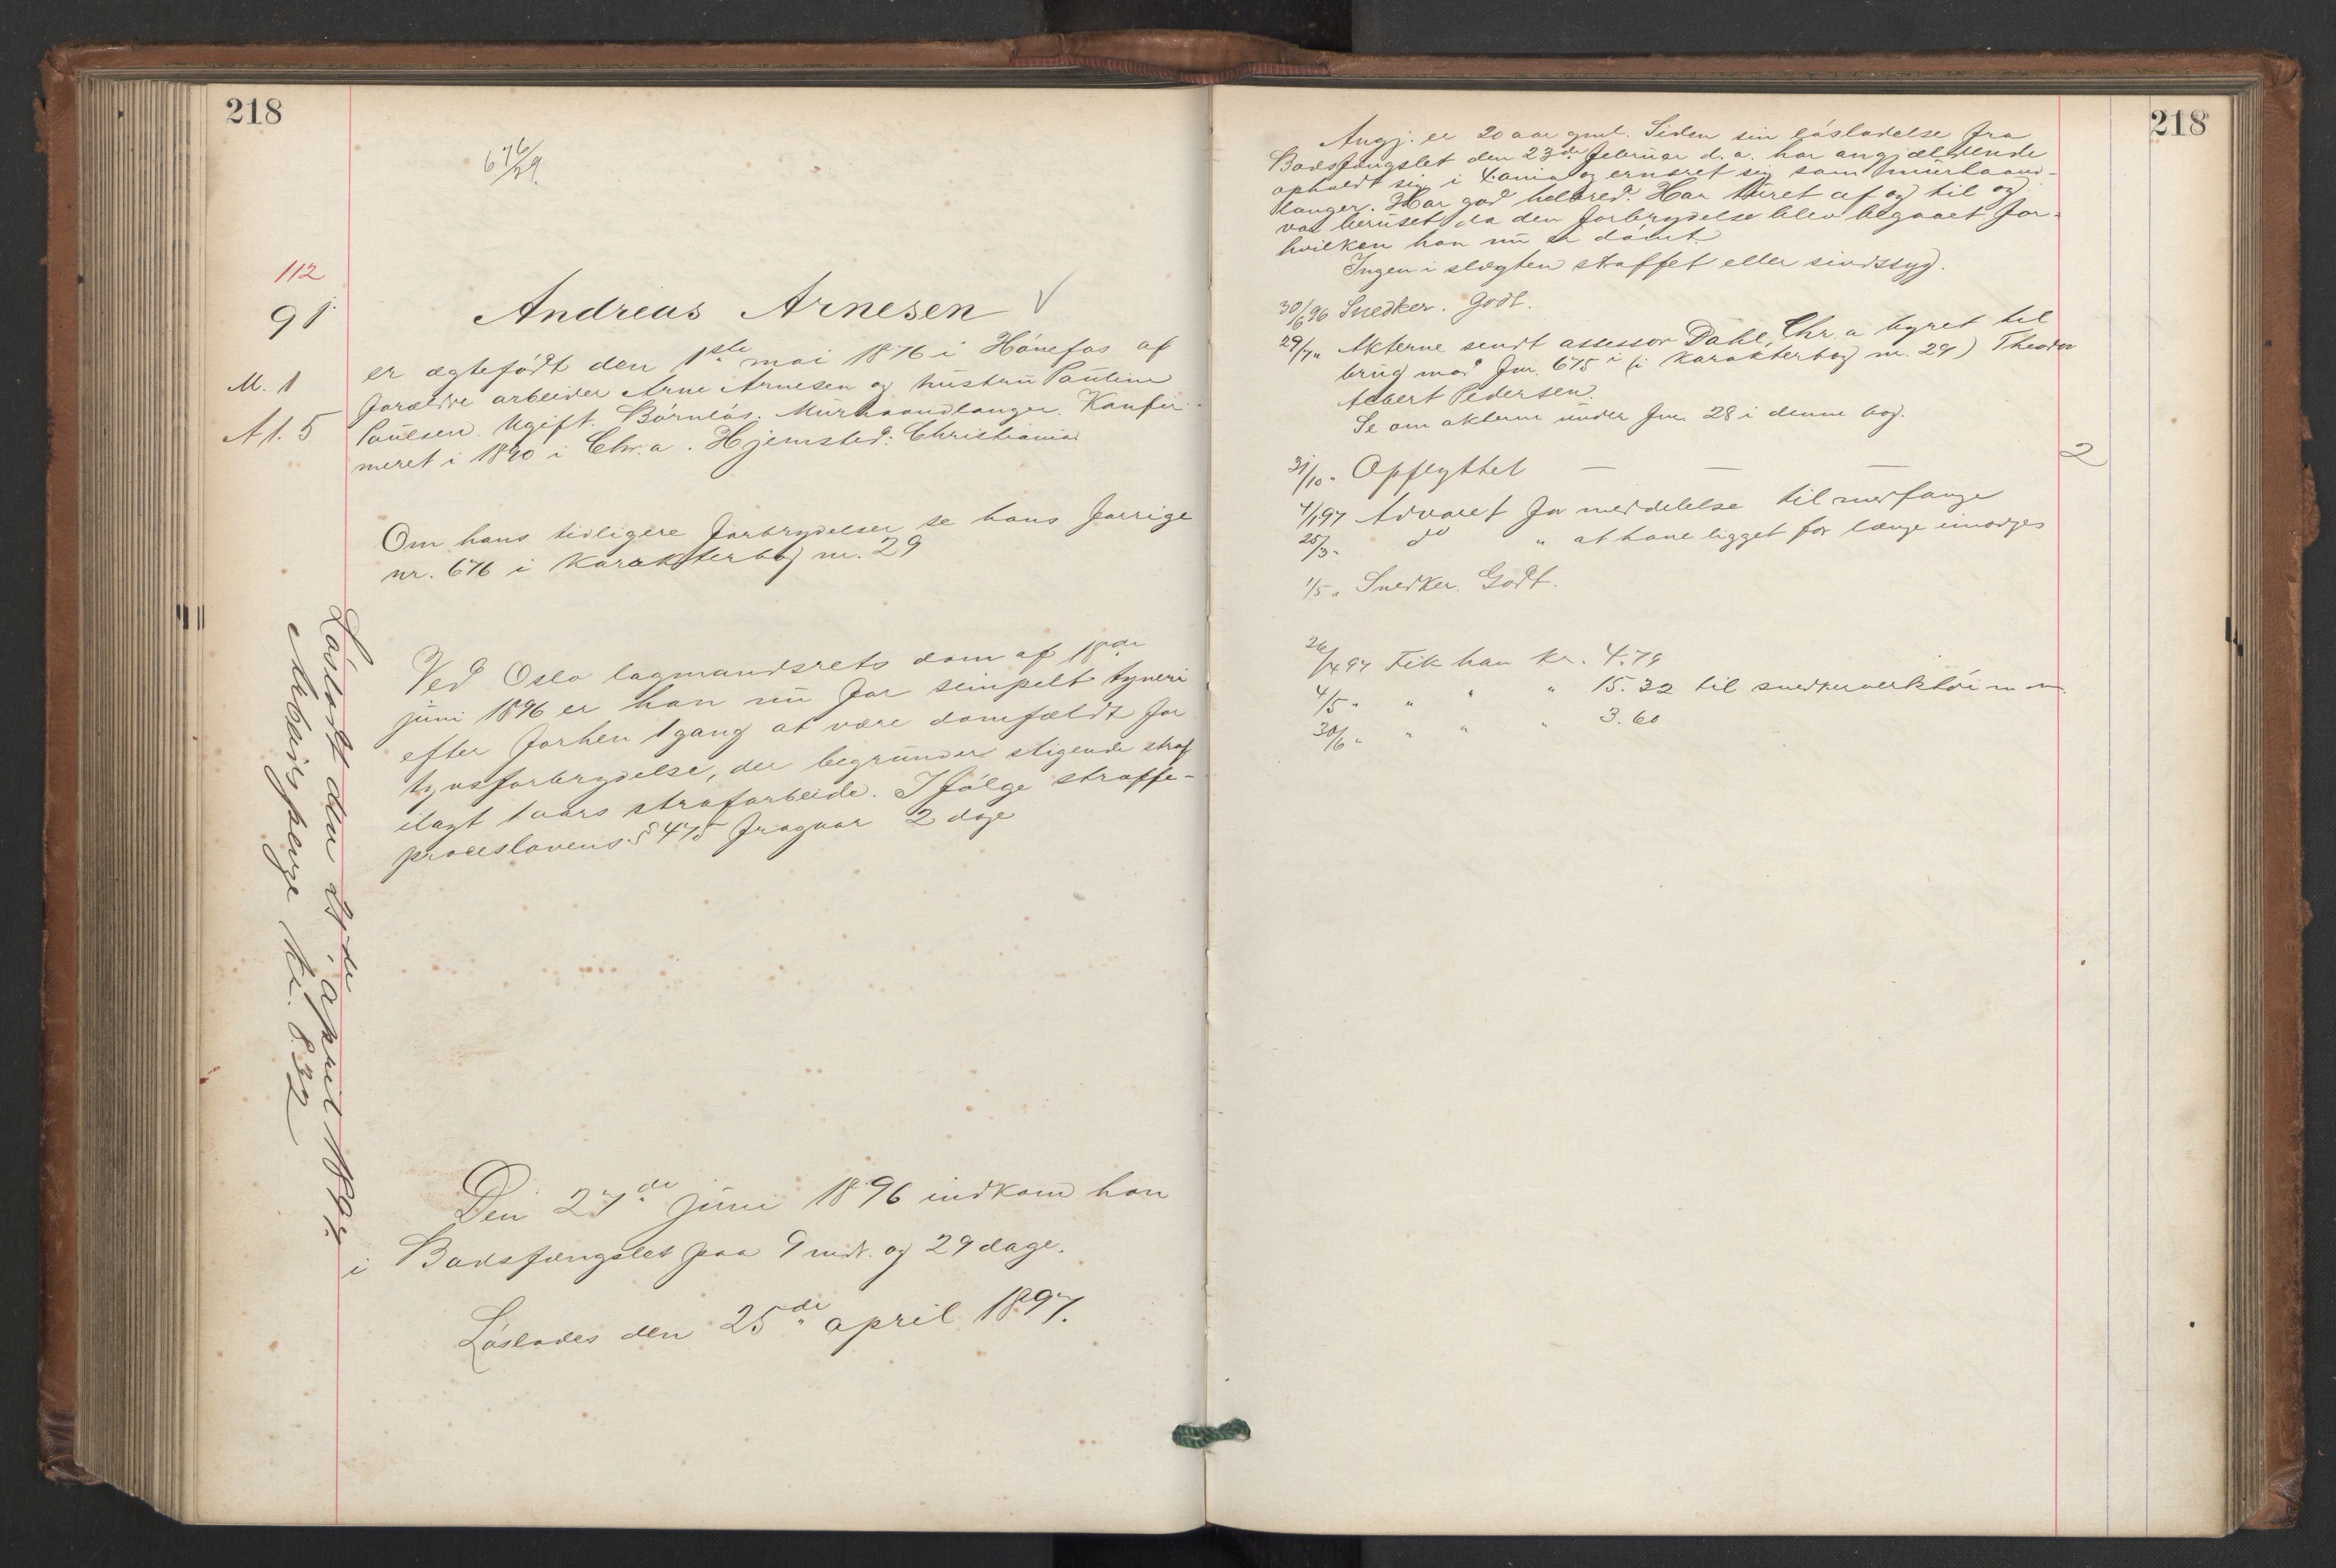 218
676/29
112
91
Andreas Arnesen
M. 1
A1. 5
er ægtefödt den 1ste mai 1876 i Hönefos af
forældre arbeider Arne Arnesen og hustru Pauline
Paulsen. Ugift. Barnlös. Murhaandlanger. Konfir-
meret i 1890 i Chr.a. Hjemsted: Christiania.
Om hans tidligere forbrydelser se hans forrige
nr. 676 i karakterbog nr. 29
Ved Oslo lagmandsrets dom af 18de
juni 1896 er han nu for simpelt tyveri
efter forhen 1 gang at være domfældt for
tyvsforbrydelse, der begrunder stigende straf
ilagt 1 aars strafarbeide. I fölge straffe-
proceslovens § 475 fragaar 2 dage
Löslodt den 25de april 1897.
Arbeidspenge kr. 8.32
Den 27de juni 1896 indkom han
i Bodsfængslet paa 9 mdr. og 29 dage.
Löslades den 25de april 1897.
218
Angj. er 20 aar gml. Siden sin lösladelse fra
Bodsfængslet den 23de februar d. a. har angjældende
opholdt sig i X.ania og ernæret sig som murhaand-
langer. Har god helbred. Har turet af og til og
var beruset, da den forbrydelse blev begaaet for
hvilken han nu er dömt.
Ingen i slægten straffet eller sindssyg.
30/6 96 Snedker. Godt.
29/7 " Akterne sendt assessor Dahl, Chr.a byret til
brug mod fnr. 675 i (i karakterbog nr. 29) Theodor
Albert Pedersen.
Se om akterne under fnr. 28 i denne bog.
31/10 " Opflyttet — — — 2
4/1 97 Advaret for meddelelse til medfange
25/3 " do " at have ligget for længe imorges
1/5 " Snedker. Godt.
26/4 97 Fik han kr. 4.79
4/5 " " " " 15.32 til snedkerverktöi m m.
30/6 " " " " 3.60